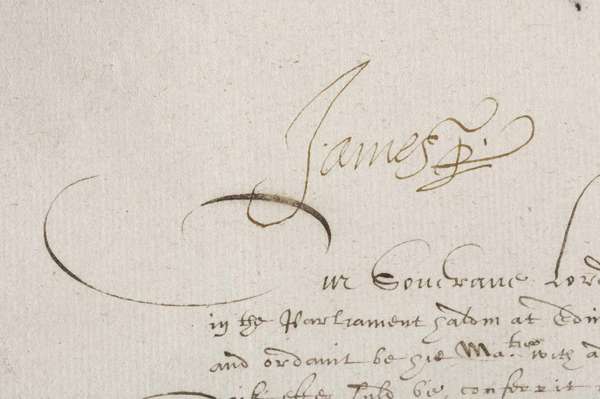 James R.
Our Soverane Lord
in the Parliament haldin at Edin
and ordanit be his Ma.ties with a
suld be conferrit